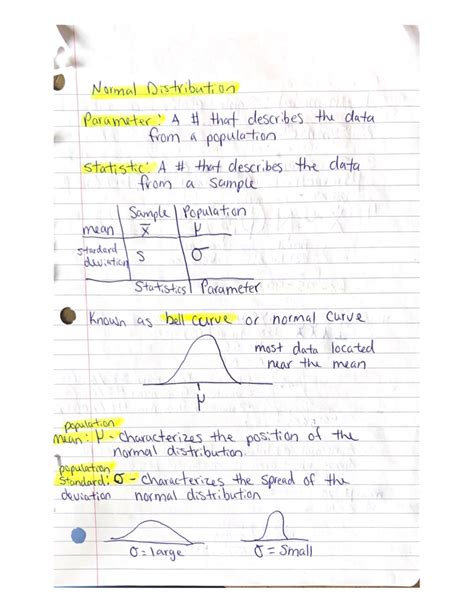 Normal Distribution
Parameter: A # that describes the data
from a population
Statistic: A # that describes the data
from a sample
Sample | Population
mean x̄ μ
standard
deviation s σ
Statistics | Parameter
Known as bell curve or normal curve
most data located
near the mean
μ
population
mean: μ - characterizes the position of the
normal distribution.
population
Standard: σ - characterizes the spread of the
deviation normal distribution
σ = large σ = small